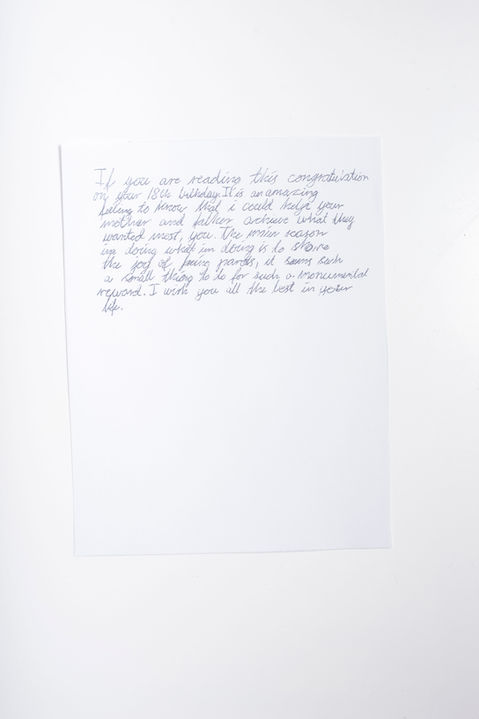 If you are reading this congratulation
on your 18th birthday. It is an amazing
feeling to know that i could help your
mother and father achieve what they
wanted most, you. The main reason
im doing what im doing is to share
the joy of being parents, it seems such
a small thing to do for such a monumental
reward. I wish you all the best in your
life.